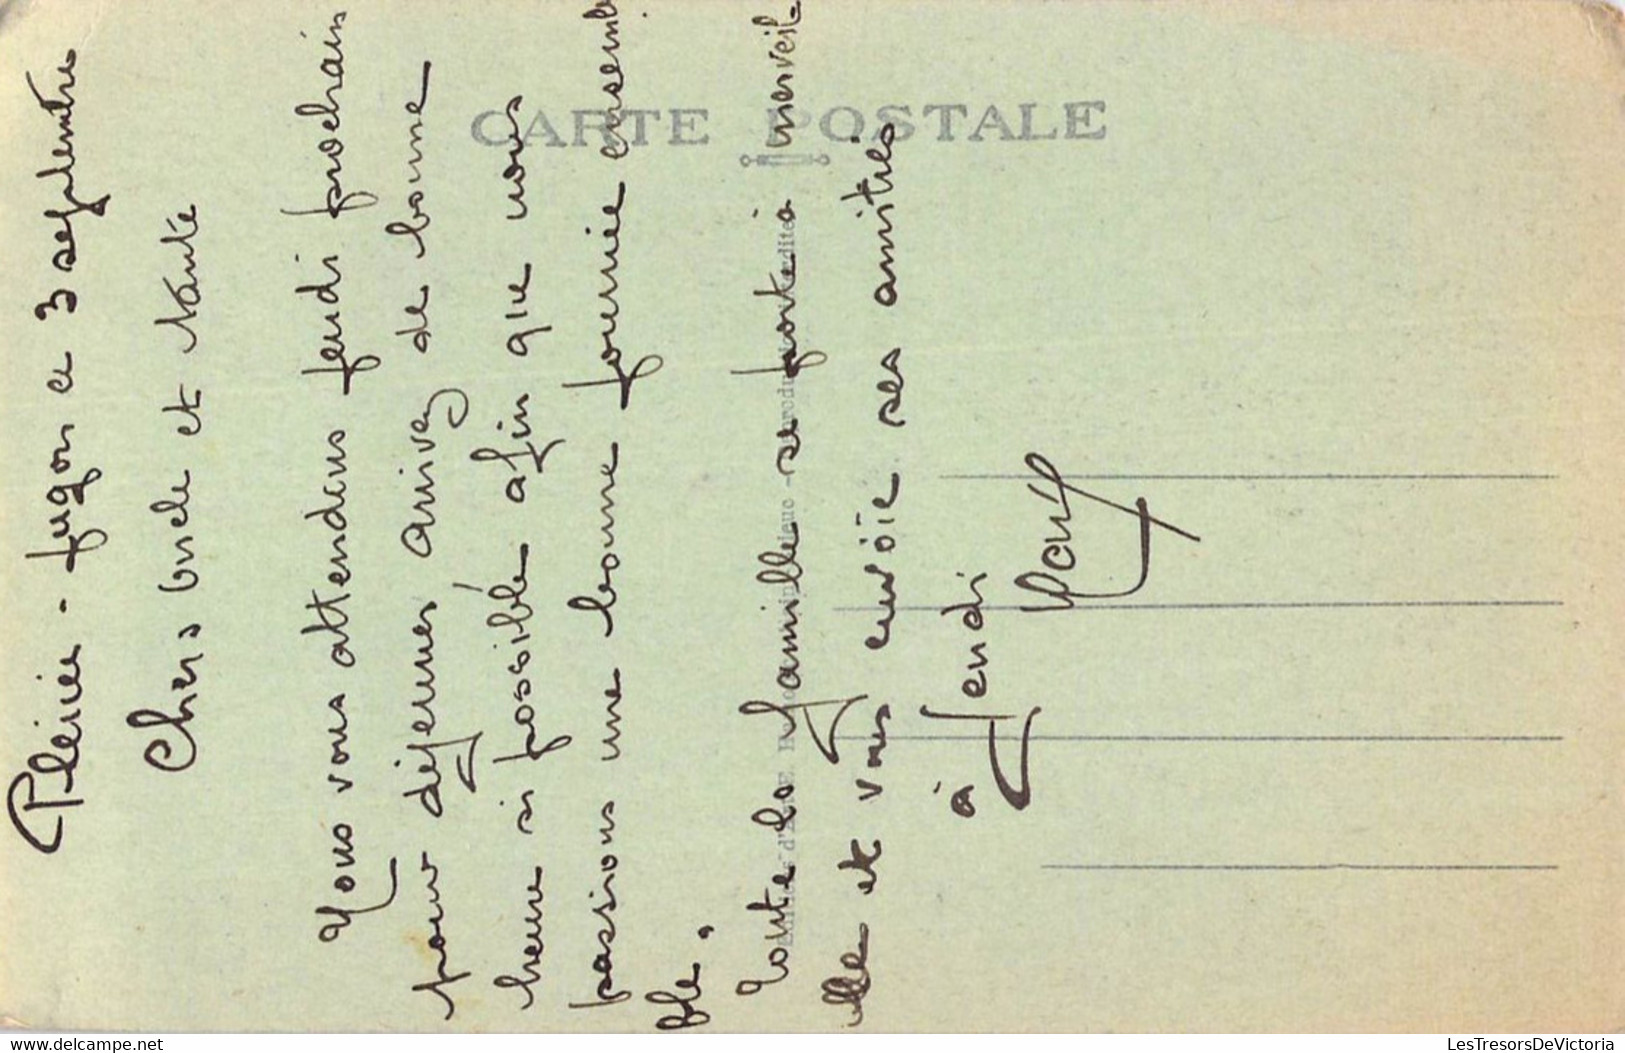 Plénée-Jugon le 3 septembre
Chers oncle et tante
Nous vous attendons jeudi prochain
pour déjeuner arrivez de bonne
heure si possible afin que nous
passions une bonne journée ensem
ble.
Toute la famille se porte à merveil
lle et vous envoie ses amitiés
à Jeudi
CARTE POSTALE
LesTresorsDeVictoria
delcampe.net